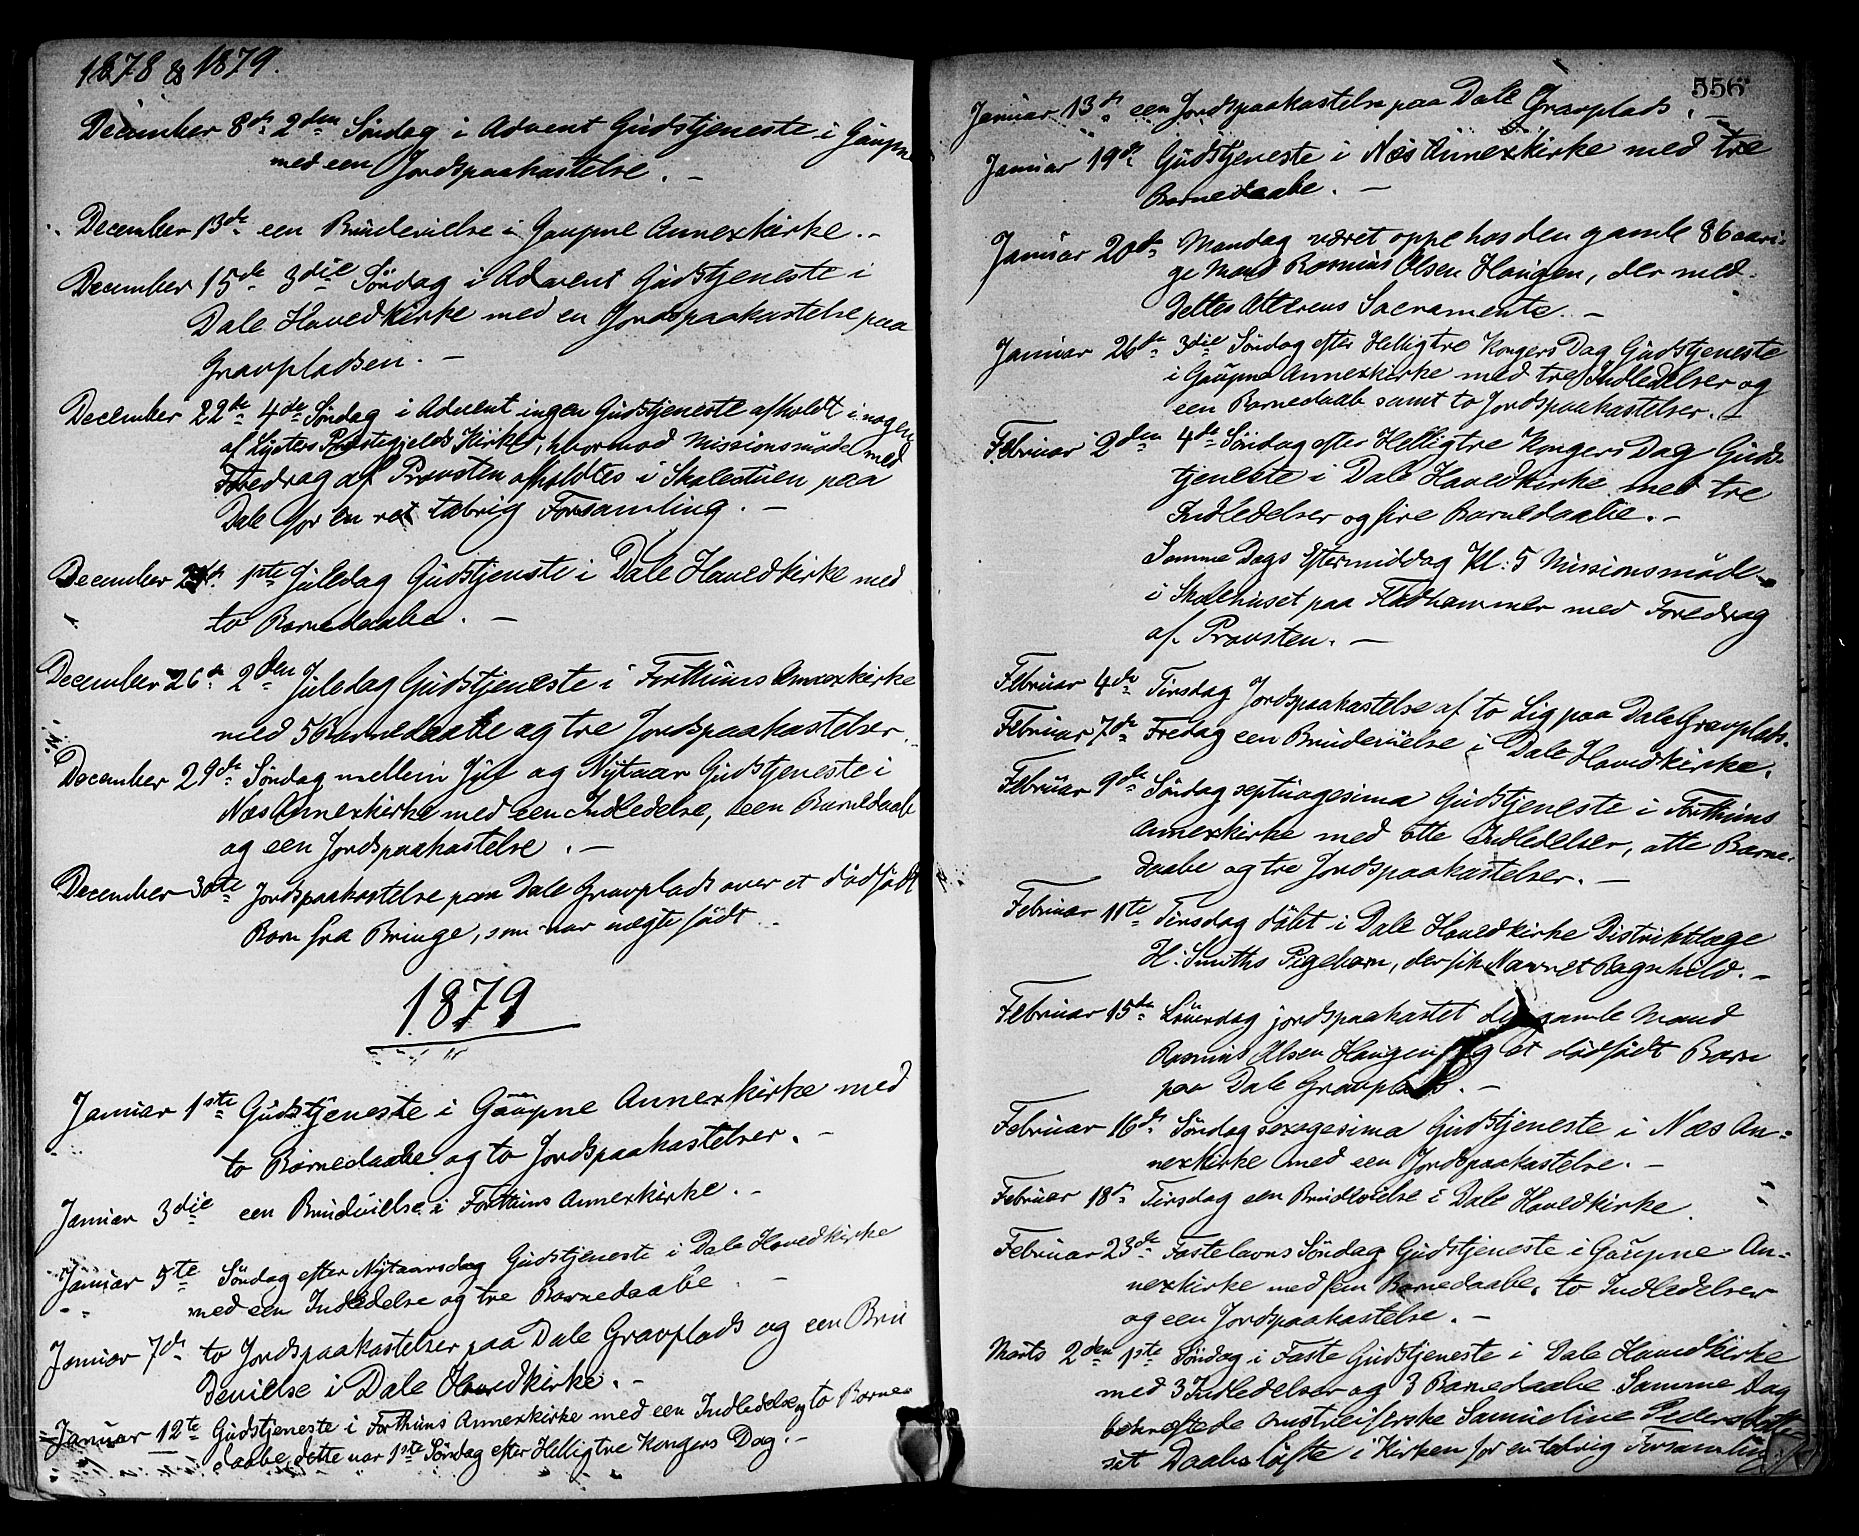 1878 & 1879.
December 8de 2den Søndag i Advent Gudstjeneste i Gaupne
med een Jordspaakastelse. —
December 13de een Brudevielse i Gaupne Annexkirke. —
December 15de 3die Søndag i Advent Gudstjeneste i
Dale Hovedkirke med en Jordspaakastelse paa
Gravpladsen. —
December 22de 4de Søndag i Advent ingen Gudstjeneste afholdt i nogen
af Lysters Præstegjelds Kirker, hvorimod Missionsmøde med
Foredrag af Provsten afholdtes i Skolestuen paa
Dale for en ret talrig Forsamling. —
December 1ste Juledag Gudstjenste i Dale Hovedkirke med
to Barnedaabe. —
December 26de 2den Juledag Gudstjeneste i Forthuns Annexkirke
med 5 Barnedaabe og tre Jordspaakastelser.
December 29de Søndag mellem Jul og Nytaar Gudstjeneste i
Næs Annexkirke med een Indledelse, een Barnedaab
og een Jordspaakastelse. —
December 30te Jordspaakastelse paa Dale Gravplads over et dødfødt
Barn fra Bringe, som var uægte født.
1879
Januar 1ste Gudstjeneste i Gaupne Annexkirke med
to Barnedaabe og to Jordspaakastelser. —
Januar 3die een Brudvielse i Forthuns Annexkirke. —
Januar 5te Søndag efter Nytaarsdag Gudstjeneste i Dale Hovedkirke
med een Indledelse og tre Barnedaabe. —
Januar 7de to Jordspaakastelser paa Dale Gravplads og een Bru
devielse i Dale Hovedkirke. —
Januar 12te Gudstjeneste i Forthuns Annexkirke med een Indledelse, to Barne-
daabe, dette var 1ste Søndag efter Helligtre Kongers Dag. —
556
Januar 13de een Jordspaakastelse paa Dale Gravplads. —
Januar 19de Gudstjeneste i Næs Annexkirke med tre
Barnedaabe. —
Januar 20de Mandag været oppe hos den gamle 86 aari-
ge Mand Rasmus Olsen Haugen, der med-
deltes Alterens Sacramente. —
Januar 26de 3die Søndag efter Helligtre Kongers Dag Gudstjeneste
i Gaupne Annexkirke med tre Indledelser og
een Barnedaab samt to Jordspaakastelser. —
Februar 2den 4de Søndag efter Helligtre Kongers Dag Guds-
tjeneste i Dale Hovedkirke med tre
Indledelser og fire Barnedaabe. —
Samme Dags Eftermiddag Kl: 5 Missionsmøde
i Skolehuset paa Fladhammer med Foredrag
af Provsten. —
Februar 4de Tirsdag Jordspaakastelse af to Lig paa Dale Gravplads.
Februar 7de Fredag een Brudevielse i Dale Hovedkirke.
Februar 9de Søndag septuagesima Gudstjeneste i Forthuns
Annexkirke med otte Indledelser, otte Barne-
daabe og tre Jordspaakastelser. —
Februar 11te Tirsdag døbt i Dale Hovedkirke Distriktslæge
H. Smiths Pigebarn, der fik Navnet Ragnhild. —
Februar 15de Løverdag jordspaakastet den gamle Mand
Rasmus Olsen Haugen og et dødfødt Barn
paa Dale Gravplads. —
Februar 16de Søndag sexagesima Gudstjeneste i Næs An-
nexkirke med een Jordspaakastelse. —
Februar 18de Tirsdag een Brudevielse i Dale Hovedkirke.
Februar 23de Fastelavns Søndag Gudstjeneste i Gaupne An-
nexkirke med fem Barnedaabe, to Indledelser
og een Jordspaakastelse. —
Marts 2den 1ste Søndag i Faste Gudstjeneste i Dale Hovedkirke
med 3 Indledelser og 3 Barnedaabe Samme Dag
bekræftede Omstreiferske Samueline Pedersdatter
sit Daabsløfte i Kirken for en talrig Forsamling.